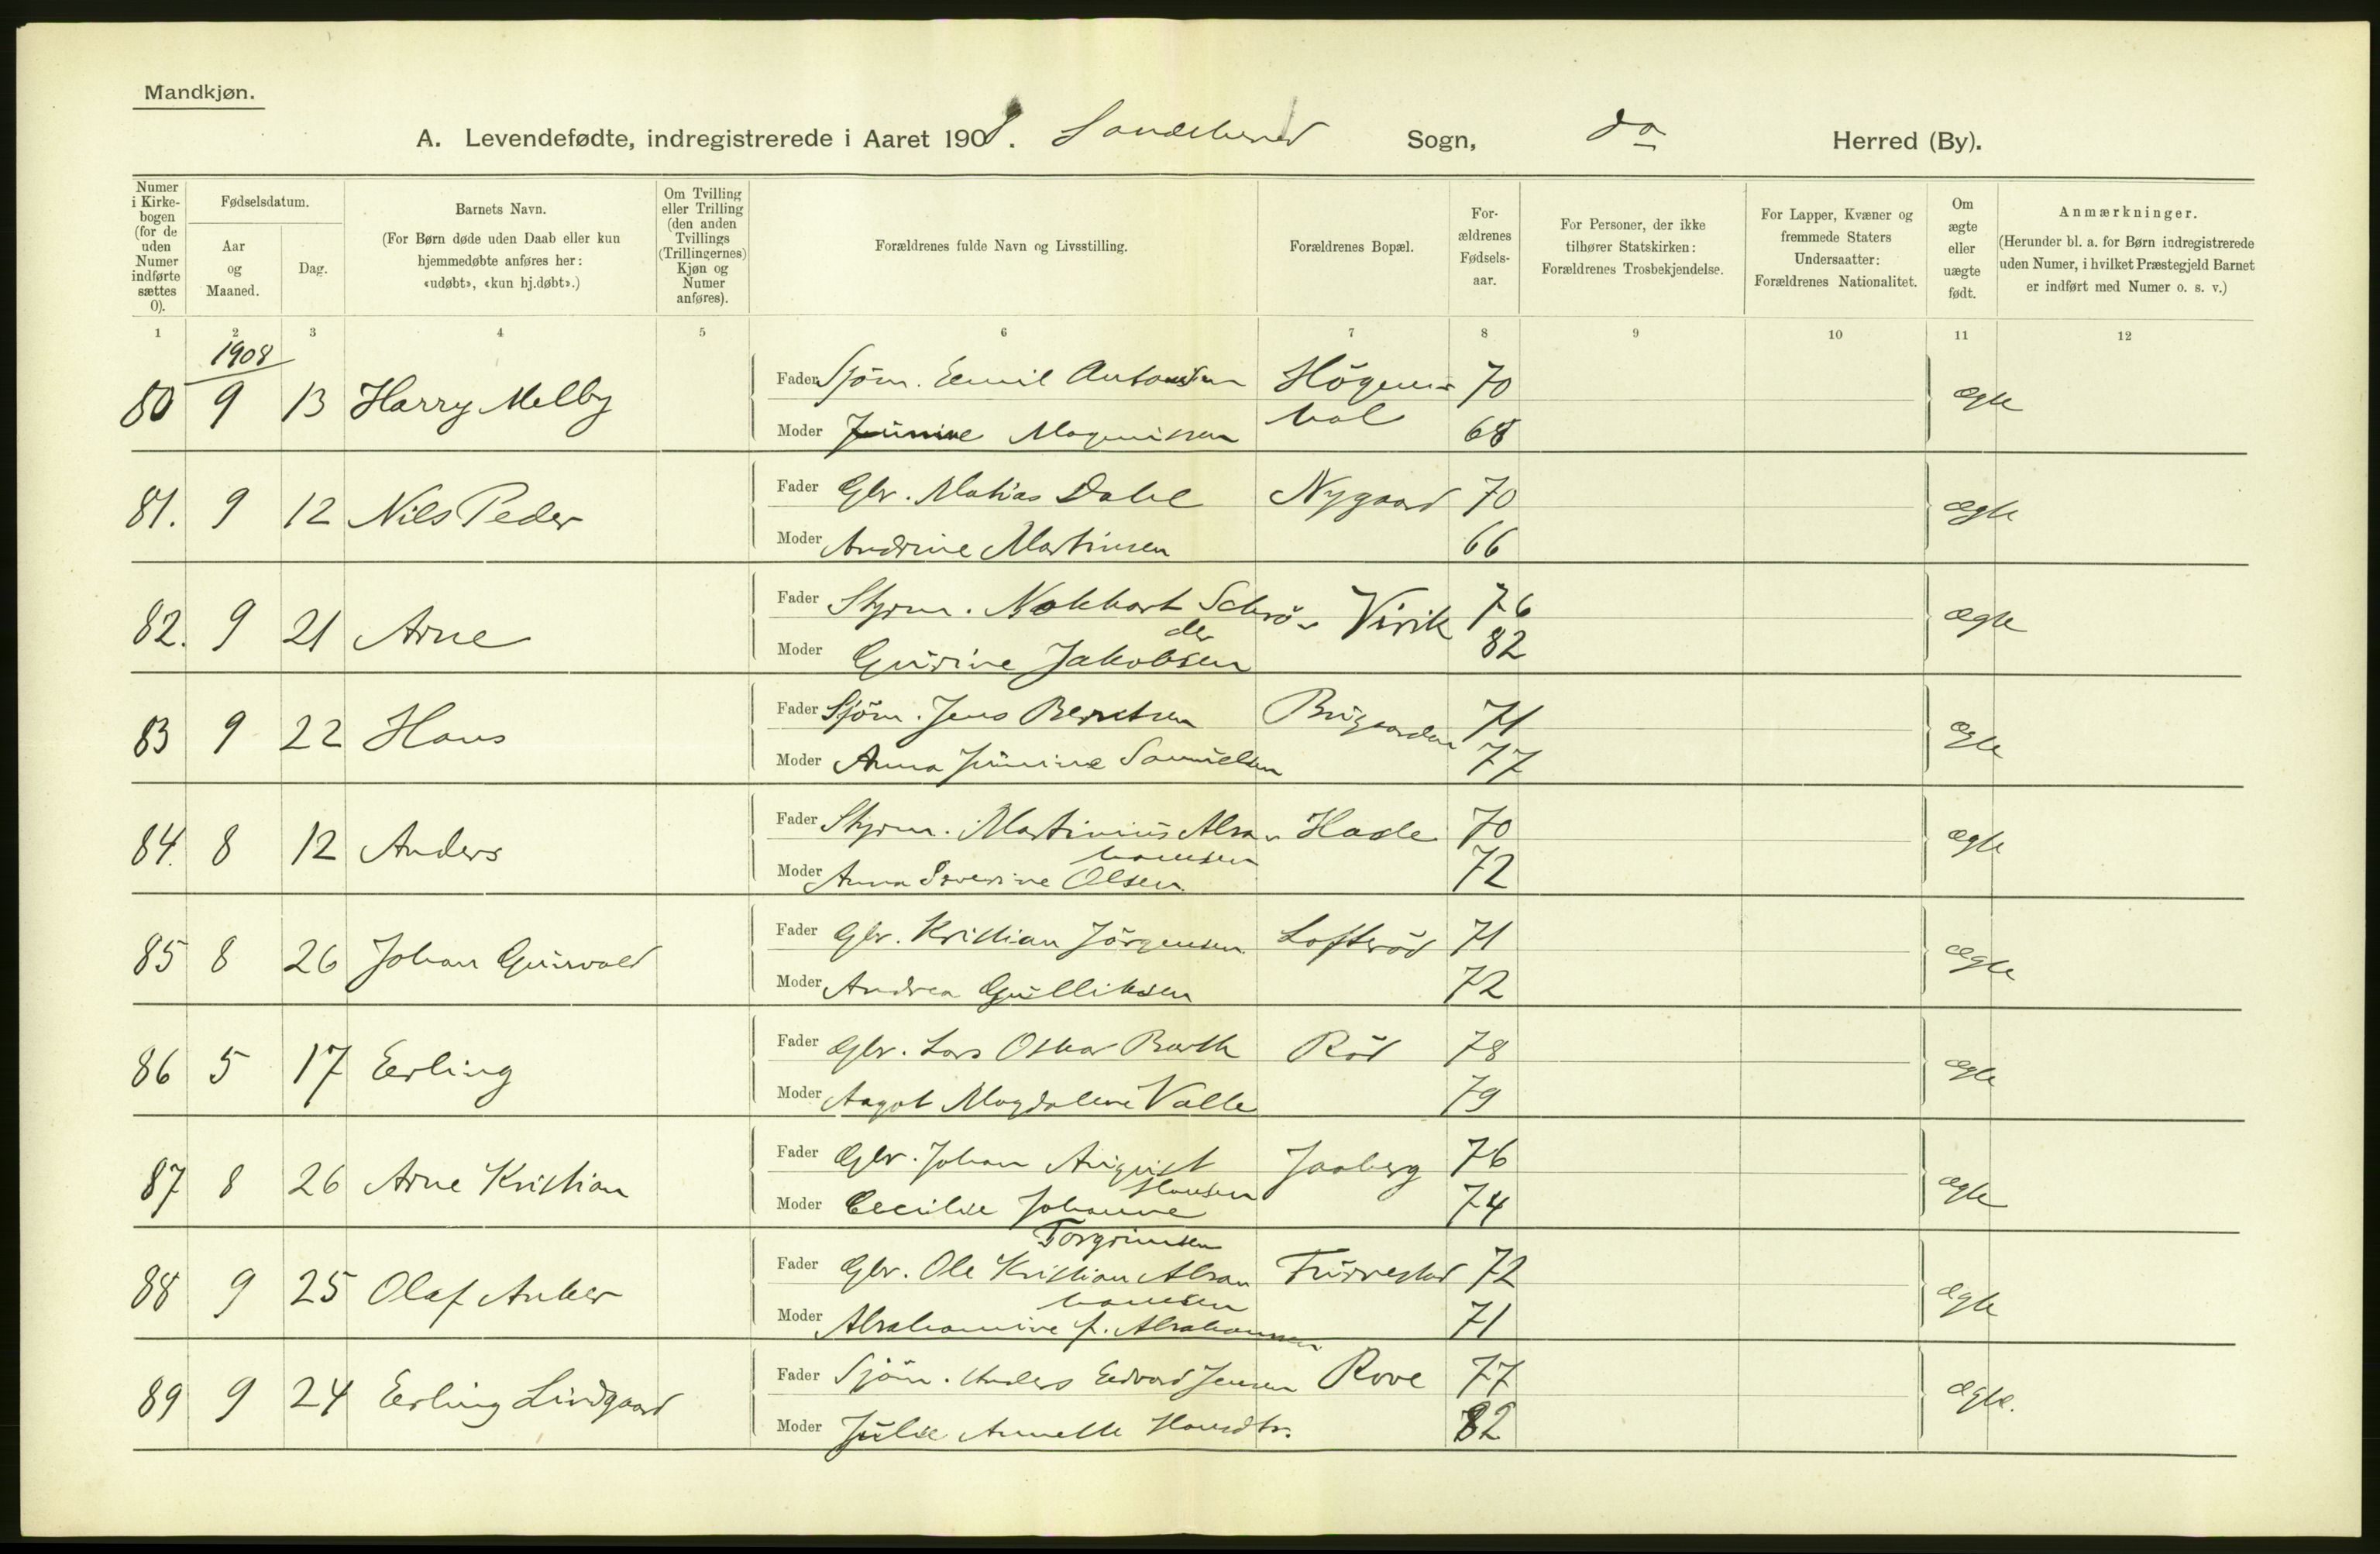 Mandkjøn.
A. Levendefødte, indregistrerede i Aaret 1908. Sandeherred Sogn, do Herred (By).
Numer i Kirkebogen (for de uden Numer indførte sættes 0).
Fødselsdatum.
Aar og Maaned.
Dag.
Barnets Navn.
(For Børn døde uden Daab eller kun hjemmedøbte anføres her: «udøbt», «kun hj.døbt».)
Om Tvilling eller Trilling (den anden Tvillings (Trillingernes) Kjøn og Numer anføres).
Forældrenes fulde Navn og Livsstilling.
Forældrenes Bopæl.
For-ældrenes Fødsels-aar.
For Personer, der ikke tilhører Statskirken: Forældrenes Trosbekjendelse.
For Lapper, Kvæner og fremmede Staters Undersaatter: Forældrenes Nationalitet.
Om ægte eller uægte født.
Anmærkninger.
(Herunder bl. a. for Børn indregistrerede uden Numer, i hvilket Præstegjeld Barnet er indført med Numer o. s. v.)
1 2 3 4 5 6 7 8 9 10 11 12
1908
80 9 13 Harry Melby Fader Sjøm. Emil Antonsen 70 ægte
Moder Magnussen 68
81. 9 12 Nils Peder Fader Gbr. Mathias Dahl Nygaard 70 ægte
Moder Andrine Martinsen 66
82. 9 21 Arne Fader Styrm. Schrö- Virik 76 ægte
der
Moder Gurine Jakobsen 82
83 9 22 Hans Fader Sjöm. Jens Berntsen 71 ægte
Moder Anna Junine Samuelsen 77
84. 8 12 Anders Fader Styrm. Martinius Abra- 70 ægte
hamsen
Moder Anna Severine Olsen 72
85 8 26 Johan Gunvald Fader Gbr. Kristian Jörgensen Lofteröd 71 ægte
Moder Andrea Gulliksen 72
86 5 17 Erling Fader Gbr. Lars Oskar Barth Röd 78 ægte
Moder Aagot Magdalene Valle 79
87 8 26 Arne Kristian Fader Gbr. Johan August Jaaberg 76 ægte
Hansen
Moder Cecilie Johanne 74
Torgrimsen
88 9 25 Olaf Anker Fader Gbr. Ole Kristian Abra Furrestad 72 ægte
hamsen
Moder Abrahamine f. Abrahamsen 71
89 9 24 Erling Lindgaard Fader Sjöm. Anders Edvard Jensen Rove 77 ægte.
Moder Julie Annette Hansdtr. 82